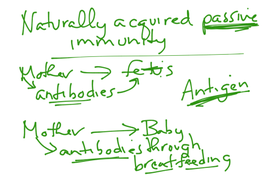 Naturally acquired passive
immunity
Mother → fetus
antibodies
Antigen
Mother → Baby
antibodies through
breastfeeding